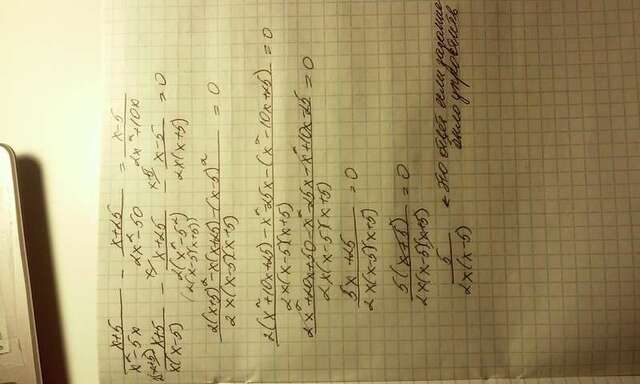 x+5/x²-5x - x+25/2x²-50 = x-5/2x²+10x
2(x+5) x+5/x(x-5) - x/ x+25/2(x²-5²) - x-5/ x-5/2x(x+5) = 0
(2(x-5)(x+5)
2(x+5)²-x(x+25)-(x-5)²/2x(x-5)(x+5) = 0
2(x²+10x+25)-x²-25x-(x²-10x+25)/2x(x-5)(x+5) = 0
2x²+20x+50-x²-25x-x²+10x-25/2x(x-5)(x+5) = 0
5x+25/2x(x-5)(x+5) = 0
5(x+5)/2x(x-5)(x+5) = 0
5/2x(x-5) ← это ответ если задание
было упростить